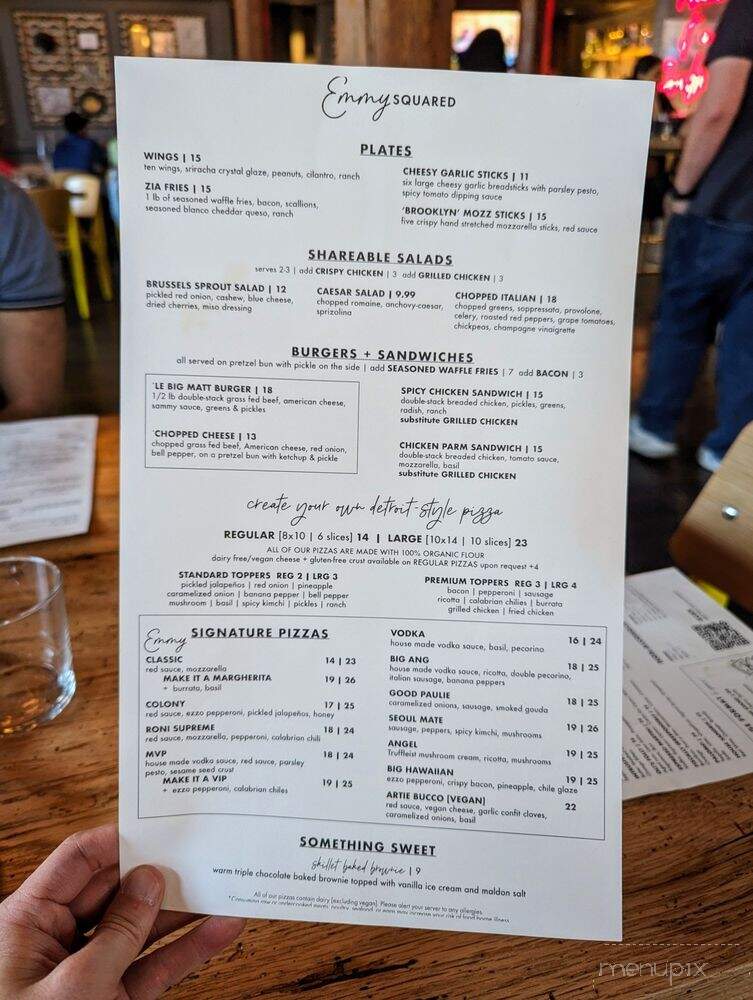 Emmy SQUARED
PLATES
WINGS | 15
ten wings, sriracha crystal glaze, peanuts, cilantro, ranch
ZIA FRIES | 15
1 lb of seasoned waffle fries, bacon, scallions,
seasoned blanco cheddar queso, ranch
CHEESY GARLIC STICKS | 11
six large cheesy garlic breadsticks with parsley pesto,
spicy tomato dipping sauce
'BROOKLYN' MOZZ STICKS | 15
five crispy hand stretched mozzarella sticks, red sauce
SHAREABLE SALADS
serves 2-3 | add CRISPY CHICKEN | 3 add GRILLED CHICKEN | 3
BRUSSELS SPROUT SALAD | 12
pickled red onion, cashew, blue cheese,
dried cherries, miso dressing
CAESAR SALAD | 9.99
chopped romaine, anchovy-caesar,
sprizolina
CHOPPED ITALIAN | 18
chopped greens, soppressata, provolone,
celery, roasted red peppers, grape tomatoes,
chickpeas, champagne vinaigrette
BURGERS + SANDWICHES
all served on pretzel bun with pickle on the side | add SEASONED WAFFLE FRIES | 7 add BACON | 3
*LE BIG MATT BURGER | 18
1/2 lb double-stack grass fed beef, american cheese,
sammy sauce, greens & pickles
*CHOPPED CHEESE | 13
chopped grass fed beef, American cheese, red onion,
bell pepper, on a pretzel bun with ketchup & pickle
SPICY CHICKEN SANDWICH | 15
double-stack breaded chicken, pickles, greens,
radish, ranch
substitute GRILLED CHICKEN
CHICKEN PARM SANDWICH | 15
double-stack breaded chicken, tomato sauce,
mozzarella, basil
substitute GRILLED CHICKEN
create your own detroit-style pizza
REGULAR [8x10 | 6 slices] 14 | LARGE [10x14 | 10 slices] 23
ALL OF OUR PIZZAS ARE MADE WITH 100% ORGANIC FLOUR
dairy free/vegan cheese + gluten-free crust available on REGULAR PIZZAS upon request +4
STANDARD TOPPERS REG 2 | LRG 3
pickled jalapeños | red onion | pineapple
caramelized onion | banana pepper | bell pepper
mushroom | basil | spicy kimchi | pickles | ranch
PREMIUM TOPPERS REG 3 | LRG 4
bacon | pepperoni | sausage
ricotta | calabrian chilies | burrata
grilled chicken | fried chicken
Emmy SIGNATURE PIZZAS
CLASSIC 14 | 23
red sauce, mozzarella
MAKE IT A MARGHERITA 19 | 26
+ burrata, basil
COLONY 17 | 25
red sauce, ezzo pepperoni, pickled jalapeños, honey
RONI SUPREME 18 | 24
red sauce, mozzarella, pepperoni, calabrian chili
MVP 18 | 24
house made vodka sauce, red sauce, parsley
pesto, sesame seed crust
MAKE IT A VIP 19 | 25
+ ezzo pepperoni, calabrian chiles
VODKA 16 | 24
house made vodka sauce, basil, pecorino
BIG ANG 18 | 25
house made vodka sauce, ricotta, double pecorino,
italian sausage, banana peppers
GOOD PAULIE 18 | 25
caramelized onions, sausage, smoked gouda
SEOUL MATE 19 | 26
sausage, peppers, spicy kimchi, mushrooms
ANGEL 19 | 25
Truffleist mushroom cream, ricotta, mushrooms
BIG HAWAIIAN 19 | 25
ezzo pepperoni, crispy bacon, pineapple, chile glaze
ARTIE BUCCO [VEGAN] 22
red sauce, vegan cheese, garlic confit cloves,
caramelized onions, basil
SOMETHING SWEET
skillet baked brownie | 9
warm triple chocolate baked brownie topped with vanilla ice cream and maldon salt
All of our pizzas contain dairy [excluding vegan]. Please alert your server to any allergies.
*Consuming raw or undercooked meats, poultry, seafood, or eggs may increase your risk of food borne illness
menupix